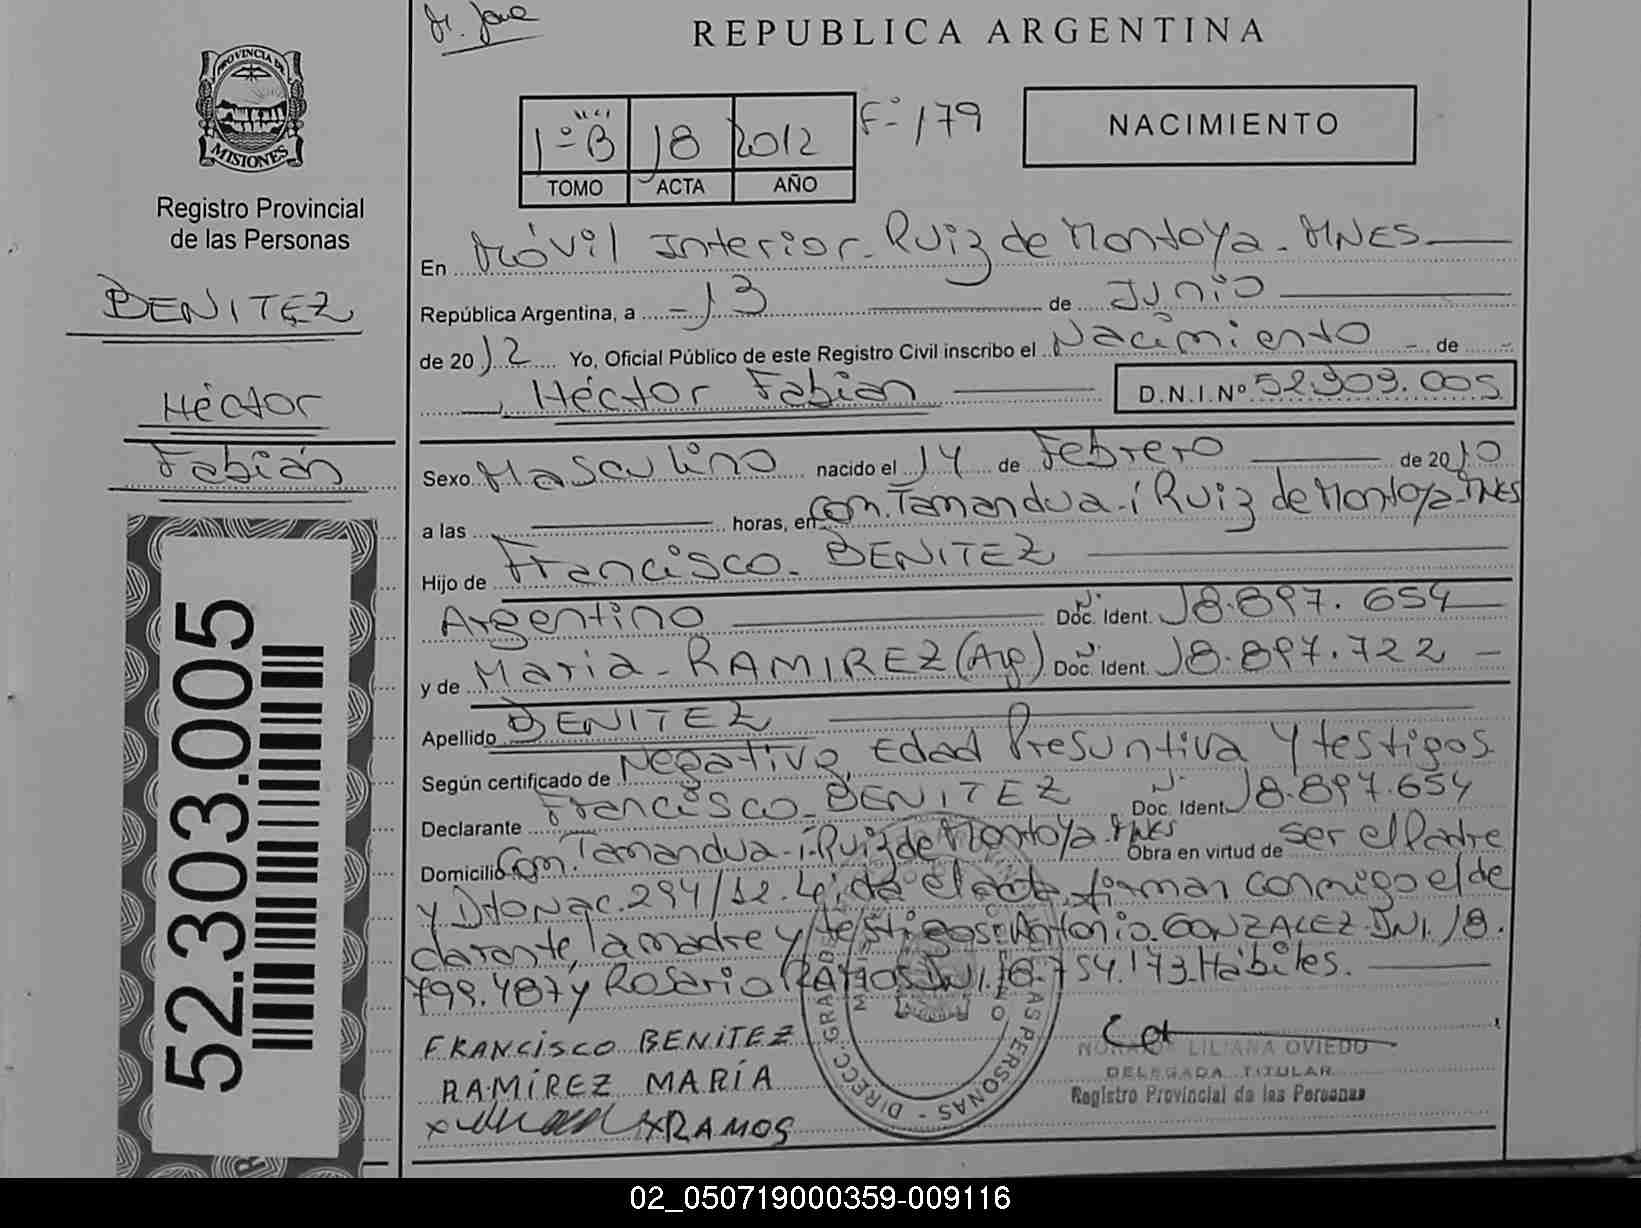 Dr. Jose
REPUBLICA ARGENTINA
PROVINCIA DE
MISIONES
Registro Provincial
de las Personas
1º B 18 2012 Fº 179
TOMO ACTA AÑO
NACIMIENTO
BENITEZ
Héctor
Fabián
52.303.005
En Móvil Interior - Ruiz de Montoya - MNES
República Argentina, a - 13 de Junio
de 2012 Yo, Oficial Público de este Registro Civil inscribo el Nacimiento - de -
Héctor Fabian D.N.I.Nº 52.303.005
Sexo Masculino nacido el 14 de Febrero de 2010
a las horas, en Com. Tamandua-í Ruiz de Montoya MNES
Hijo de Francisco - BENITEZ
Argentino Nº Doc. Ident. 18.897.654
y de Maria - RAMIREZ (Arg) Nº Doc. Ident. 18.897.722 -
Apellido BENITEZ
Según certificado de Negativo, Edad Presuntiva y testigos
Declarante Francisco - BENITEZ Nº Doc. Ident. 18.897.654
Domicilio Com. Tamandua-í - Ruiz de Montoya - MNES Obra en virtud de ser el Padre
y Dto Nac. 294/12. Leída el acta, firman conmigo el de
clarante, la madre y testigos: Antonio GONZALEZ DNI. 18.
799.487 y Rosario RAMOS DNI. 18.754.173 Hábiles.
FRANCISCO BENITEZ
RAMÍREZ MARÍA
x RAMOS
DIRECC. GRAL. DE LAS PERSONAS
LILIANA OVIEDO
DELEGADA TITULAR
Registro Provincial de las Personas
02_050719000359-009116